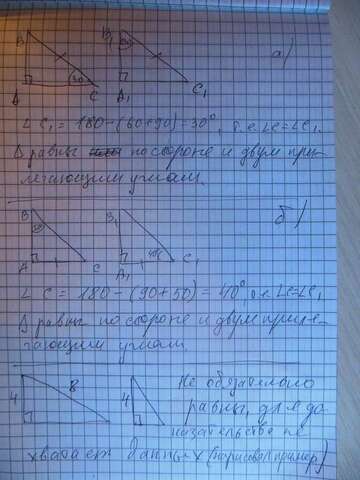 B B₁ a)
60
30
A C A₁ C₁
∠ C₁ = 180 - (60+90) = 30°, т.е. ∠C = ∠C₁.
Δ равны по стороне и двум при-
легающим углам.
B B₁ б)
50
40
A C A₁ C₁
∠ C = 180 - (90 + 50) = 40°, т.е. ∠C = ∠C₁
Δ равны по стороне и двум приле-
гающим углам.
4 8 4 Не обязательно
равны, для до
казательства не
хватает данных (нарисовал пример)